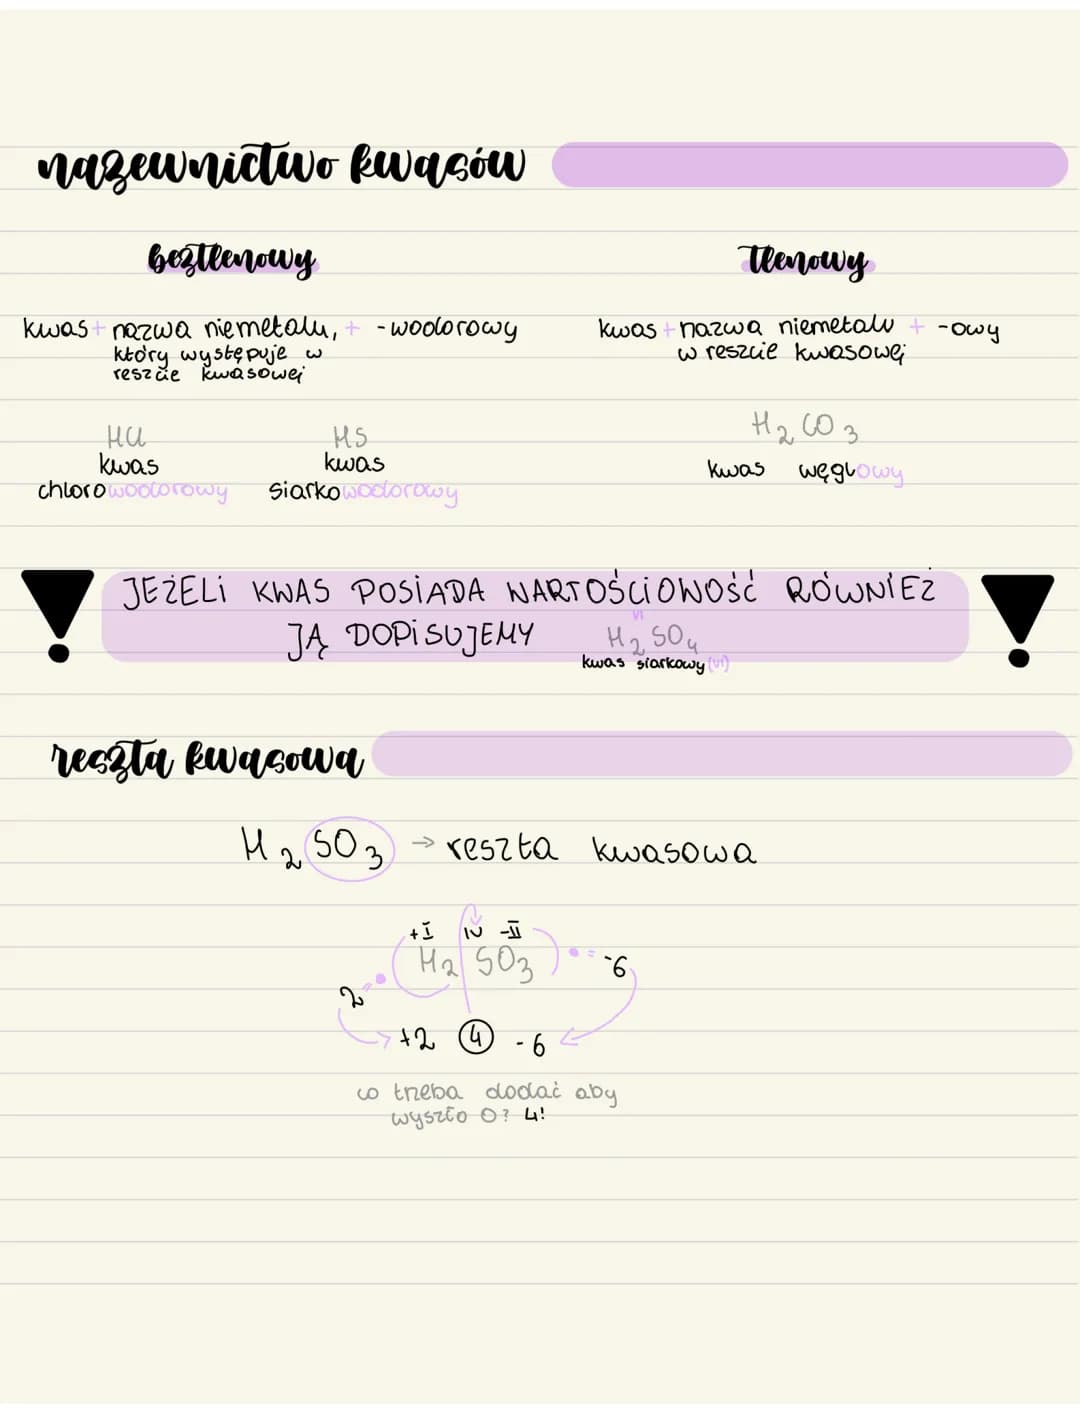 nazewnictwo kwasów
beztlenowy
tlenowy
kwas + nazwa niemetalu, + -wodorowy
który występuje w
reszcie kwasowej
kwas + nazwa niemetalu + -owy
w reszcie kwasowej
HCl
kwas
chlorowodorowy
HS
kwas
siarkowodorowy
H2CO3
kwas węglowy
JEŻELI KWAS POSIADA WARTOŚCIOWOŚĆ RÓWNIEŻ
JĄ DOPISUJEMY
VI
H2SO4
kwas siarkowy (VI)
reszta kwasowa
H2SO3 → reszta kwasowa
+I IV -II
H2SO3 • = -6
2 = •
+2 4 -6
co trzeba dodać aby
wyszło 0? 4!